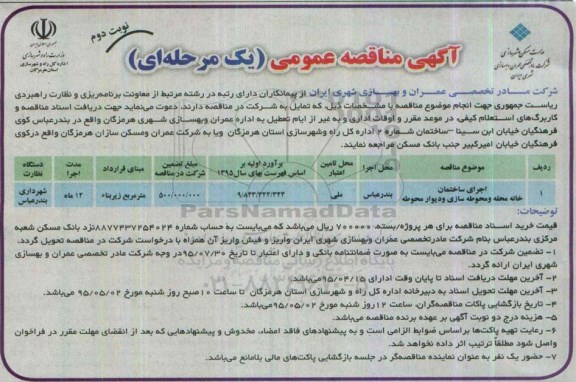 نوبت دوم
آگهی مناقصه عمومی (یک مرحله‌ای)
شرکت مادر تخصصی عمران و بهسازی شهری ایران از پیمانکاران دارای رتبه در رشته مرتبط از معاونت برنامه‌ریزی و نظارت راهبردی
ریاست جمهوری جهت انجام موضوع مناقصه با مشخصات ذیل، که تمایل به شرکت در مناقصه دارند، دعوت می‌نماید جهت دریافت اسناد مناقصه و
کاربرگ‌های استعلام کیفی، در موعد مقرر و اوقات اداری و به غیر از ایام تعطیل به اداره عمران وبهسازی شهری هرمزگان واقع در بندرعباس کوی
فرهنگیان خیابان ابن سینا -ساختمان شماره ۲ اداره کل راه وشهرسازی استان هرمزگان ویا به شرکت عمران ومسکن سازان هرمزگان واقع درکوی
فرهنگیان خیابان امیرکبیر جنب بانک مسکن مراجعه نمایند.
ردیف موضوع مناقصه محل اجرا محل تامین اعتبار برآورد اولیه بر اساس فهرست بهای سال۱۳۹۵ مبلغ تضمین شرکت در مناقصه مبنای قرارداد مدت اجرا دستگاه نظارت
۱ اجرای ساختمان خانه محله ومحوطه سازی ودیوار محوطه بندرعباس ملی ۹/۸۳۳/۳۲۲/۳۴۳ ۵۰۰/۰۰۰/۰۰۰ مترمربع زیربناء ۱۲ ماه شهرداری بندرعباس
توضیحات:
قیمت خرید اسناد مناقصه برای هر پروژه/بسته، ۷۰۰۰۰۰ ریال می‌باشد که می‌بایست به حساب شماره ۸۸۷۴۳۷۲۵۴۰۲۴نزد بانک مسکن شعبه
مرکزی بندرعباس بنام شرکت مادرتخصصی عمران وبهسازی شهری ایران واریز و فیش واریز آن همراه با درخواست شرکت در مناقصه تحویل گردد.
۱- تضمین شرکت در مناقصه می‌بایست به صورت ضمانتنامه بانکی و دارای اعتبار تا تاریخ ۹۵/۰۷/۳۰در وجه شرکت مادر تخصصی عمران و بهسازی
شهری ایران ارائه گردد.
۲- آخرین مهلت دریافت اسناد تا پایان وقت اداری ۹۵/۰۴/۱۵می‌باشد.
۳- آخرین مهلت تحویل اسناد به دبیرخانه اداره کل راه و شهرسازی استان هرمزگان تا ساعت ۱۰ صبح روز شنبه مورخ ۹۵/۰۵/۰۲ می‌باشد.
۴- تاریخ بازگشایی پاکات مناقصه‌گران، ساعت ۱۲ روز شنبه مورخ ۹۵/۰۵/۰۲می‌باشد.
۵- هزینه درج دو نوبت آگهی بر عهده برنده مناقصه می‌باشد.
۶- رعایت تهیه پاکت‌ها براساس ضوابط الزامی است و به پیشنهادهای فاقد امضاء، مخدوش و پیشنهادهایی که بعد از انقضای مهلت مقرر در فراخوان
واصل شود مطلقاً ترتیب اثر داده نخواهد شد.
۷- حضور یک نفر به عنوان نماینده مناقصه‌گر در جلسه بازگشایی پاکت‌های مالی بلامانع می‌باشد.
ParsNamadData